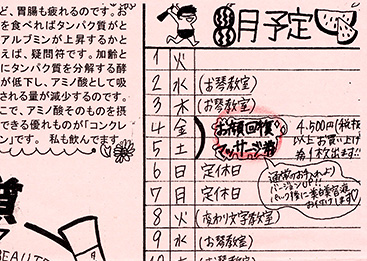 ど、胃腸も疲れるのです。お
を食べればタンパク質がと
アルブミンが上昇するかと
えば、疑問符です。加齢と
にタンパク質を分解する酵
が低下し、アミノ酸として吸
される量が減少するのです。
こで、アミノ酸そのものを摂
できる優れものが「コンクレ
ン」です。 私も飲んでます
質
BEAUTE
8月予定
1 火
2 水 (お琴教室)
3 木 (お琴教室)
4 金
5 土
お顔回復
マッサージ券
4,500円(税抜
以上お買い上げ
1枚出ます!!
6 日 定休日
7 月 定休日
通常のお手入れより
バージョンUP!!
パック後に
お付けします♡
8 火 (変わり文字教室)
9 水 (お琴教室)
(お琴教室)